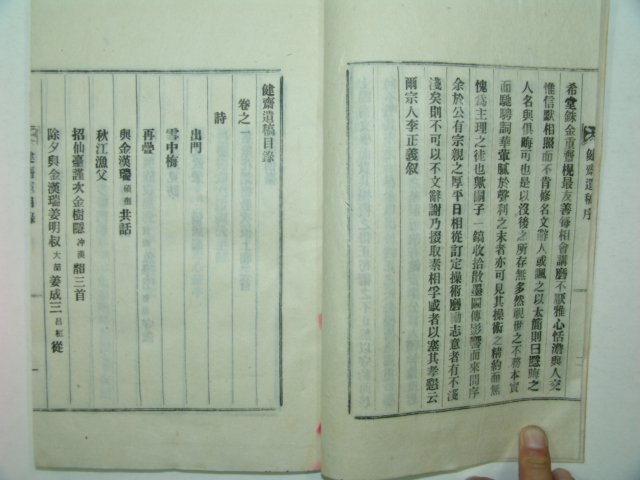 健齋遺稿序
希堂銖金重燾槻最友善每相會講磨不厭雅心恬澹與人交
惟信猒相照而不肯修名文辭人或諷之以太簡則曰隱晦之
人名與俱晦可也是以沒後之所存無多然視世之不務本實
而馳騁詞華葷膩於聲利之末者亦可見其操術之精約而無
愧爲主理之徒也歟嗣子一鎬收拾散墨圖傳影響而來問序
余於公有宗親之厚平日相從訂定操術磨勵志意者有不淺
淺矣則不可以不文辭謝乃掇取素相孚或者以塞其孝懇云
爾宗人李正義叙
健齋遺稿目錄
卷之一
詩
出門
雪中梅
再疊
與金漢瓊共話
秋江漁父
招仙臺謹次金樹隱冲漢韻三首
除夕與金漢瑞姜明叔姜成三從